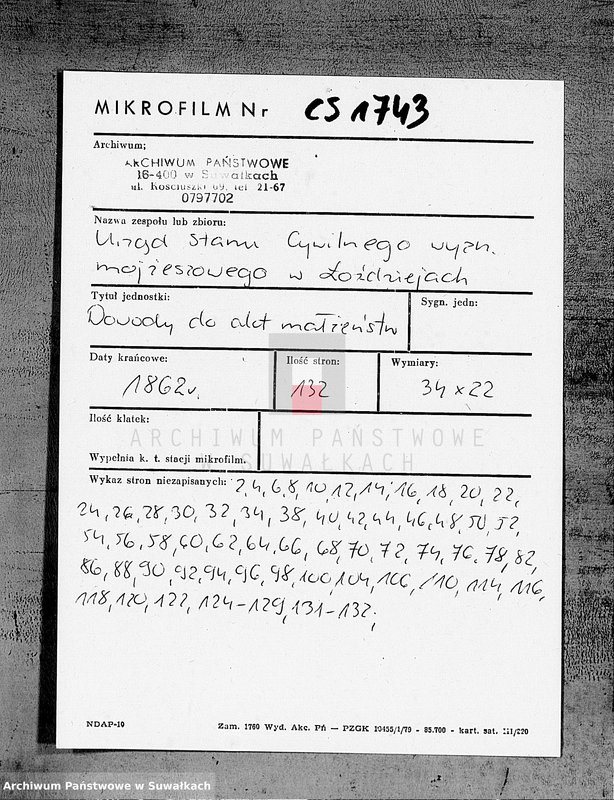 MIKROFILM Nr CS 1743
Archiwum;
ARCHIWUM PAŃSTWOWE
16-400 w Suwałkach
ul. Kościuszki 69, tel 21-67
0797702
Nazwa zespołu lub zbioru:
Urząd Stanu Cywilnego wyzn.
mojżeszowego w Łoździejach
Tytuł jednostki:
Sygn. jedn:
Dowody do akt małżeństw
Daty krańcowe:
Ilość stron:
Wymiary:
1862r.
132
34 x 22
Ilość klatek:
ARCHIWUM PAŃSTWOWE
W SUWAŁKACH
Wypełnia k. t. stacji mikrofilm.
Wykaz stron niezapisanych: 2, 4, 6, 8, 10, 12, 14, 16, 18, 20, 22,
24, 26, 28, 30, 32, 34, 38, 40, 42, 44, 46, 48, 50, 52,
54, 56, 58, 60, 62, 64, 66, 68, 70, 72, 74, 76, 78, 82,
86, 88, 90, 92, 94, 96, 98, 100, 104, 106, 110, 114, 116,
118, 120, 122, 124-129, 131-132,
NDAP-10
Zam. 1760 Wyd. Akc. Pń — PZGK 10455/1/79 - 85.700 - kart. sat. III/220
Archiwum Państwowe w Suwałkach